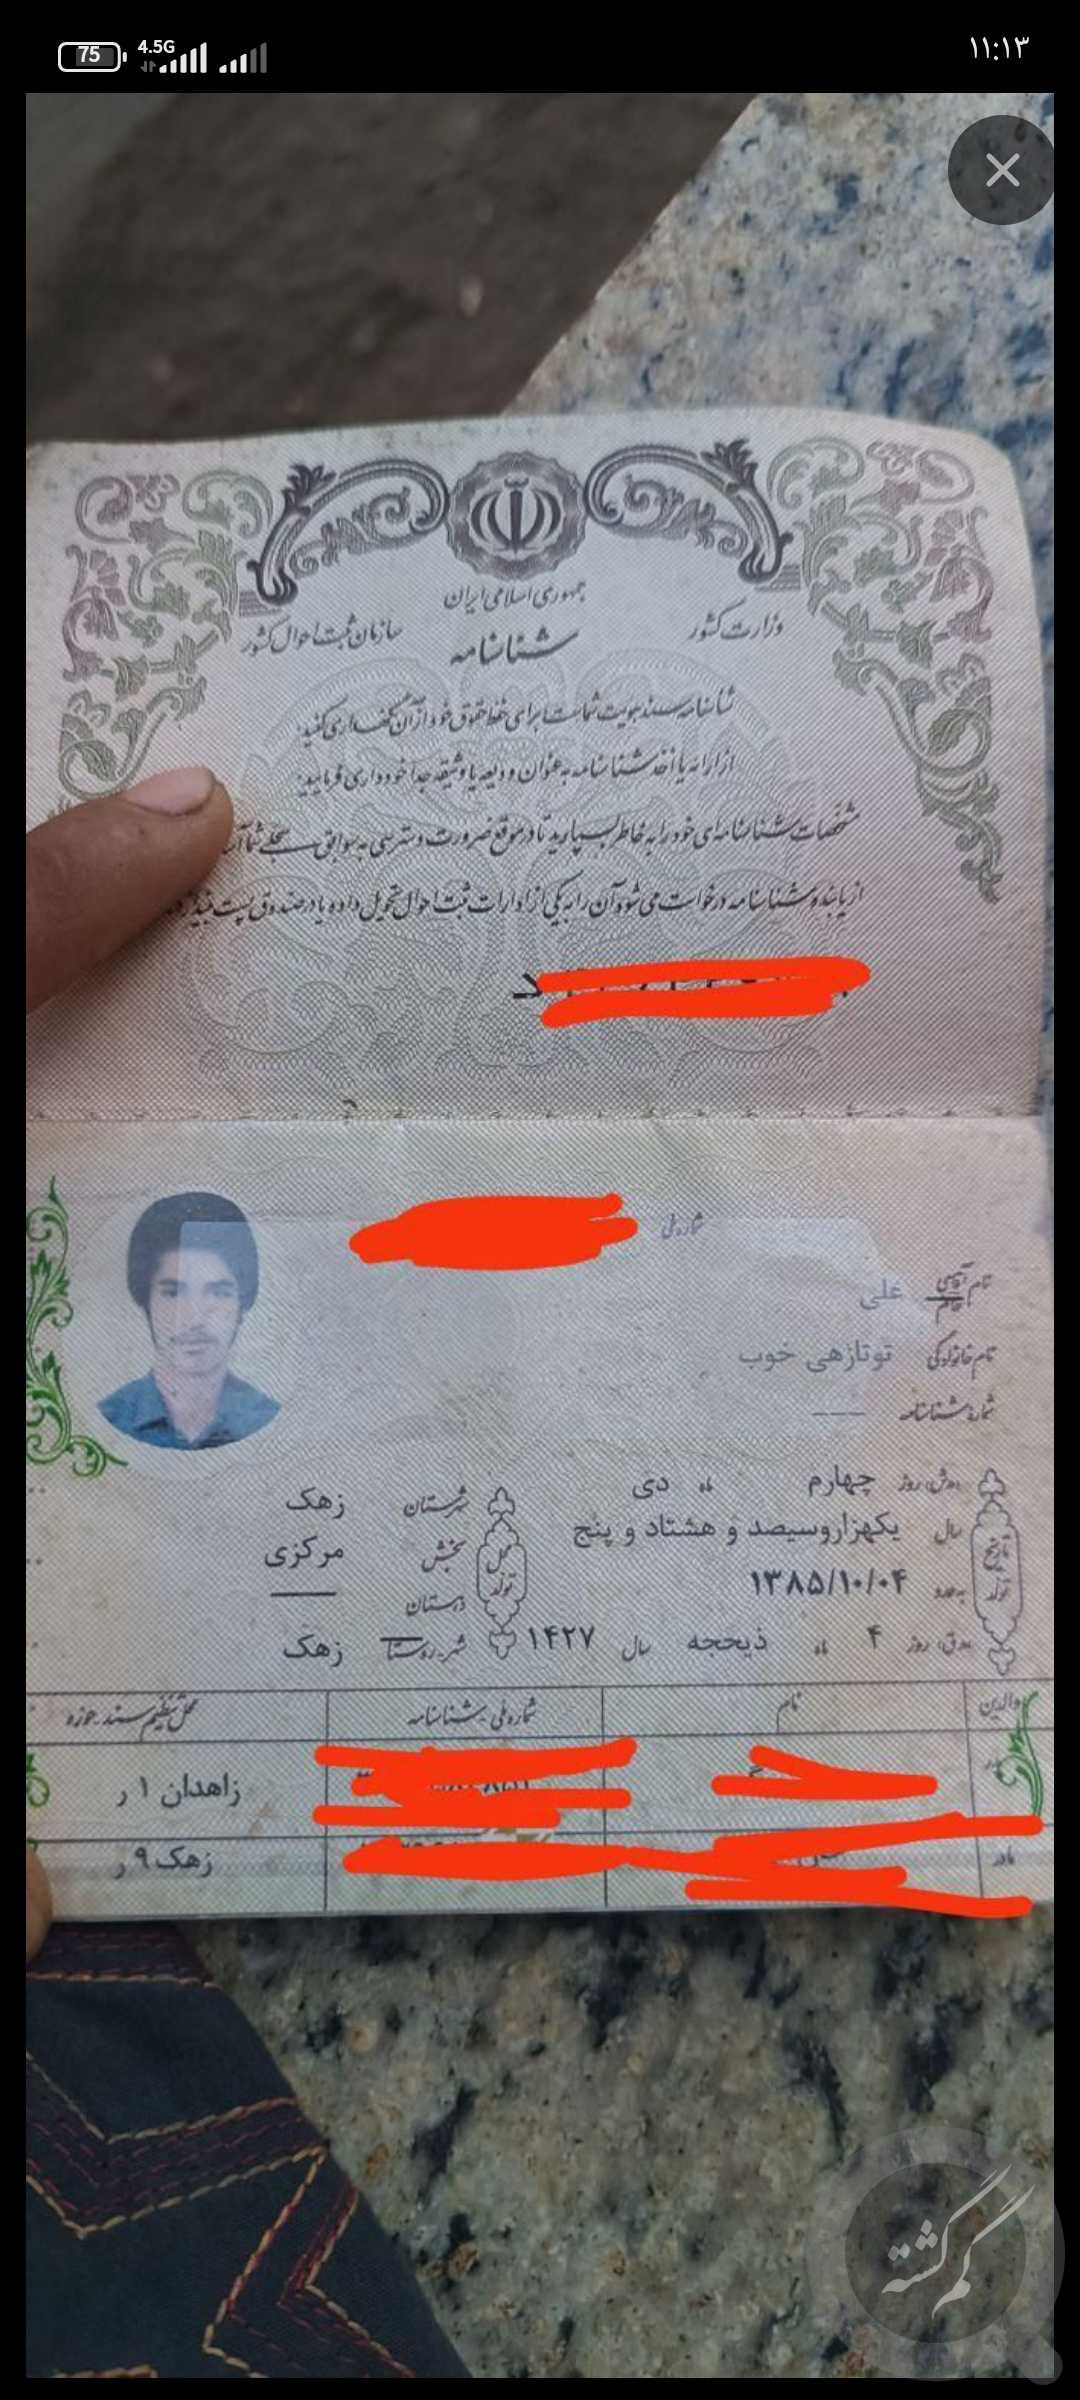 75
4.5G
۱۱:۱۳
جمهوری اسلامی ایران
وزارت کشور
سازمان ثبت احوال کشور
شناسنامه
شناسنامه سند هویت شماست برای حفظ حقوق خود از آن نگهداری کنید.
از ارائه یا اخذ شناسنامه به عنوان ودیعه یا وثیقه جداً خودداری فرمایید.
مشخصات شناسنامه‌ای خود را به خاطر بسپارید تا در موقع ضرورت دسترسی به سوابق سجلی شما
از یابنده شناسنامه درخواست می‌شود آن را به یکی از ادارات ثبت احوال تحویل داده یا در صندوق پست
شماره ملی
نام آقای خانم علی
نام خانوادگی توتازهی خوب
شماره شناسنامه ——
تاریخ تولد
روز چهارم ماه دی
سال یکهزاروسیصد و هشتاد و پنج
۱۳۸۵/۱۰/۰۴
روز ۴ ماه ذیحجه سال ۱۴۲۷
محل تولد
شهرستان زهک
بخش مرکزی
دهستان ——
شهر-روستا زهک
والدین نام شماره ملی-شناسنامه محل تنظیم سند-حوزه
زاهدان ۱ ر
مادر زهک ۹ ر
گمگشته